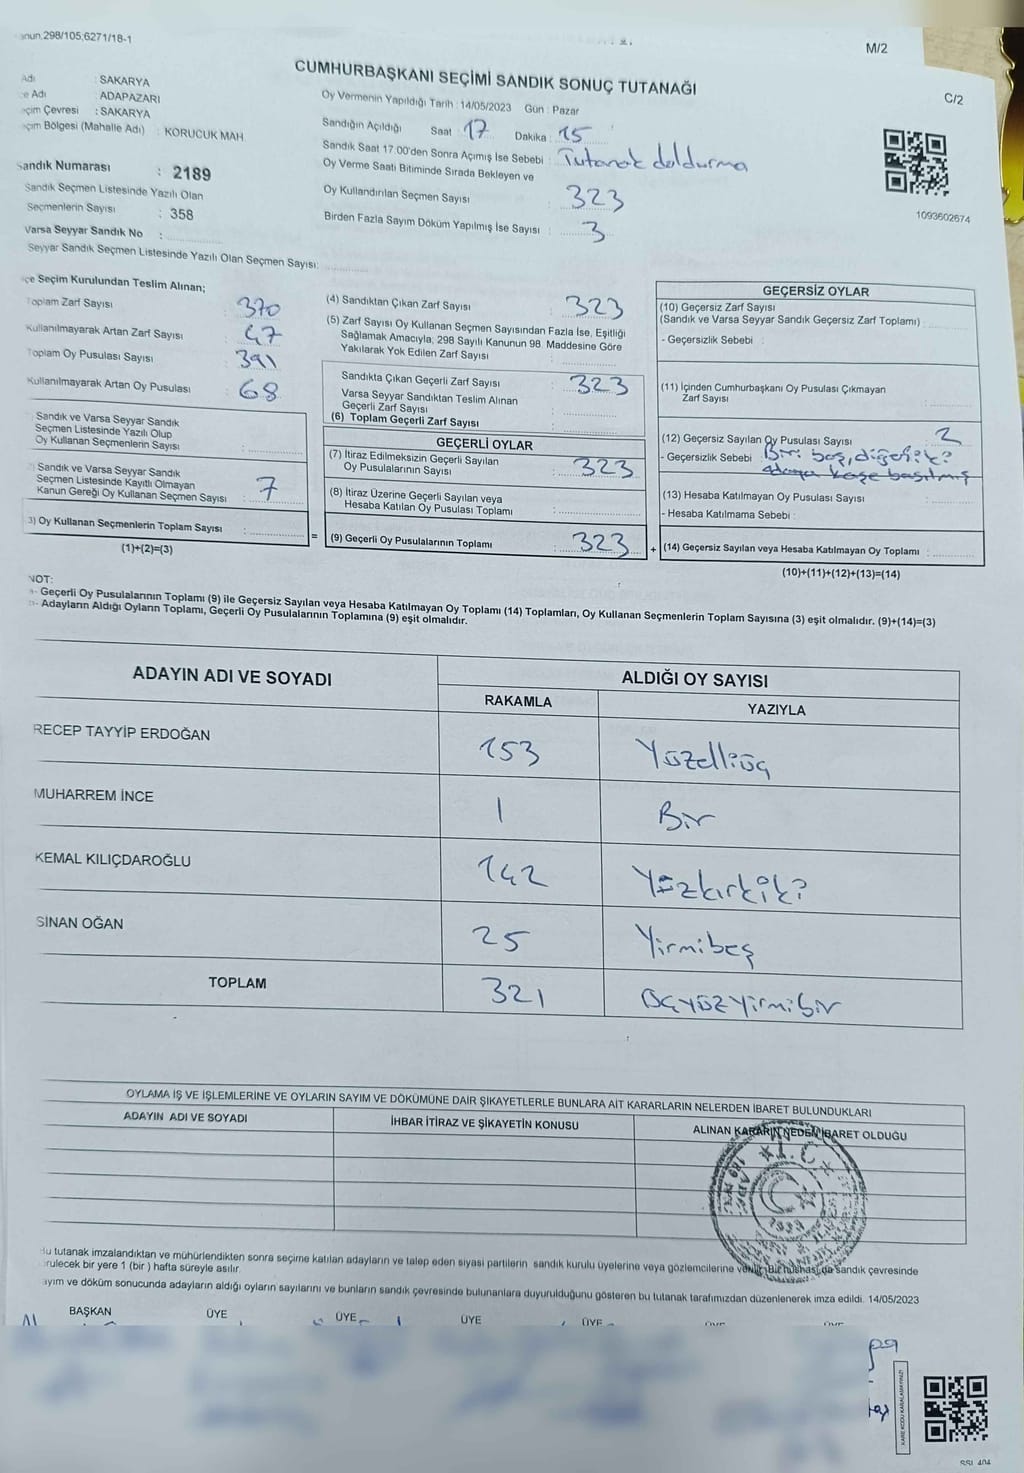 anun,298/105,6271/18-1
M/2
CUMHURBAŞKANI SEÇİMİ SANDIK SONUÇ TUTANAĞI
C/2
Adı : SAKARYA
e Adı : ADAPAZARI
çim Çevresi : SAKARYA
çim Bölgesi (Mahalle Adı) : KORUCUK MAH
Sandık Numarası : 2189
Sandık Seçmen Listesinde Yazılı Olan
Seçmenlerin Sayısı : 358
Varsa Seyyar Sandık No :
Seyyar Sandık Seçmen Listesinde Yazılı Olan Seçmen Sayısı:
Oy Vermenin Yapıldığı Tarih : 14/05/2023 Gün : Pazar
Sandığın Açıldığı Saat : 17 Dakika : 15
Sandık Saat 17.00'den Sonra Açımış İse Sebebi : Tutanak doldurma
Oy Verme Saati Bitiminde Sırada Bekleyen ve
Oy Kullandırılan Seçmen Sayısı : 323
Birden Fazla Sayım Döküm Yapılmış İse Sayısı : 3
1093602674
çe Seçim Kurulundan Teslim Alınan;
Toplam Zarf Sayısı : 370
Kullanılmayarak Artan Zarf Sayısı : 47
Toplam Oy Pusulası Sayısı : 391
Kullanılmayarak Artan Oy Pusulası : 68
Sandık ve Varsa Seyyar Sandık
Seçmen Listesinde Yazılı Olup
Oy Kullanan Seçmenlerin Sayısı :
Sandık ve Varsa Seyyar Sandık
Seçmen Listesinde Kayıtlı Olmayan
Kanun Gereği Oy Kullanan Seçmen Sayısı : 7
3) Oy Kullanan Seçmenlerin Toplam Sayısı :
(1)+(2)=(3)
(4) Sandıktan Çıkan Zarf Sayısı : 323
(5) Zarf Sayısı Oy Kullanan Seçmen Sayısından Fazla İse, Eşitliği
Sağlamak Amacıyla, 298 Sayılı Kanunun 98. Maddesine Göre
Yakılarak Yok Edilen Zarf Sayısı :
Sandıkta Çıkan Geçerli Zarf Sayısı : 323
Varsa Seyyar Sandıktan Teslim Alınan
Geçerli Zarf Sayısı :
(6) Toplam Geçerli Zarf Sayısı :
GEÇERLİ OYLAR
(7) İtiraz Edilmeksizin Geçerli Sayılan
Oy Pusulalarının Sayısı : 323
(8) İtiraz Üzerine Geçerli Sayılan veya
Hesaba Katılan Oy Pusulası Toplamı :
= (9) Geçerli Oy Pusulalarının Toplamı : 323 +
GEÇERSİZ OYLAR
(10) Geçersiz Zarf Sayısı
(Sandık ve Varsa Seyyar Sandık Geçersiz Zarf Toplamı) :
- Geçersizlik Sebebi :
(11) İçinden Cumhurbaşkanı Oy Pusulası Çıkmayan
Zarf Sayısı :
(12) Geçersiz Sayılan Oy Pusulası Sayısı : 2
- Geçersizlik Sebebi : Biri boş, diğeri iki
adaya kaşe basılmış
(13) Hesaba Katılmayan Oy Pusulası Sayısı :
- Hesaba Katılmama Sebebi :
(14) Geçersiz Sayılan veya Hesaba Katılmayan Oy Toplamı :
(10)+(11)+(12)+(13)=(14)
NOT:
- Geçerli Oy Pusulalarının Toplamı (9) ile Geçersiz Sayılan veya Hesaba Katılmayan Oy Toplamı (14) Toplamları, Oy Kullanan Seçmenlerin Toplam Sayısına (3) eşit olmalıdır. (9)+(14)=(3)
- Adayların Aldığı Oyların Toplamı, Geçerli Oy Pusulalarının Toplamına (9) eşit olmalıdır.
ADAYIN ADI VE SOYADI
ALDIĞI OY SAYISI
RAKAMLA YAZIYLA
RECEP TAYYİP ERDOĞAN 153 Yüzelliüç
MUHARREM İNCE 1 Bir
KEMAL KILIÇDAROĞLU 142 Yüzkırkiki
SİNAN OĞAN 25 Yirmibeş
TOPLAM 321 Üçyüzyirmibir
OYLAMA İŞ VE İŞLEMLERİNE VE OYLARIN SAYIM VE DÖKÜMÜNE DAİR ŞİKAYETLERLE BUNLARA AİT KARARLARIN NELERDEN İBARET BULUNDUKLARI
ADAYIN ADI VE SOYADI
İHBAR İTİRAZ VE ŞİKAYETİN KONUSU
ALINAN KARARIN NEDEN İBARET OLDUĞU
T.C.
Bu tutanak imzalandıktan ve mühürlendikten sonra seçime katılan adayların ve talep eden siyasi partilerin sandık kurulu üyelerine veya gözlemcilerine verilir. Bir nüshası da sandık çevresinde
örülecek bir yere 1 (bir) hafta süreyle asılır.
ayım ve döküm sonucunda adayların aldığı oyların sayılarını ve bunların sandık çevresinde bulunanlara duyurulduğunu gösteren bu tutanak tarafımızdan düzenlenerek imza edildi. 14/05/2023
BAŞKAN ÜYE ÜYE ÜYE ÜYE
KARE KODU KARALAMAYINIZ!